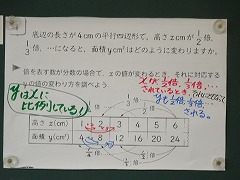 底辺の長さが4cmの平行四辺形で、高さzcmが1/2倍、
1/3倍、…になると、面積ycm²はどのように変わりますか。
倍を表す数が分数の場合で、xの値が変わるとき、それに対応する
yの値の変わり方を調べよう。
xが1/2倍、1/3倍、…
されているとき、それにともなって
yも1/2倍、1/3倍、…
される。
yはxに
比例している!
1/3倍
1/2倍
高さ x(cm) 1 2 3 4 5 6
面積 y(cm²) 4 8 12 16 20 24